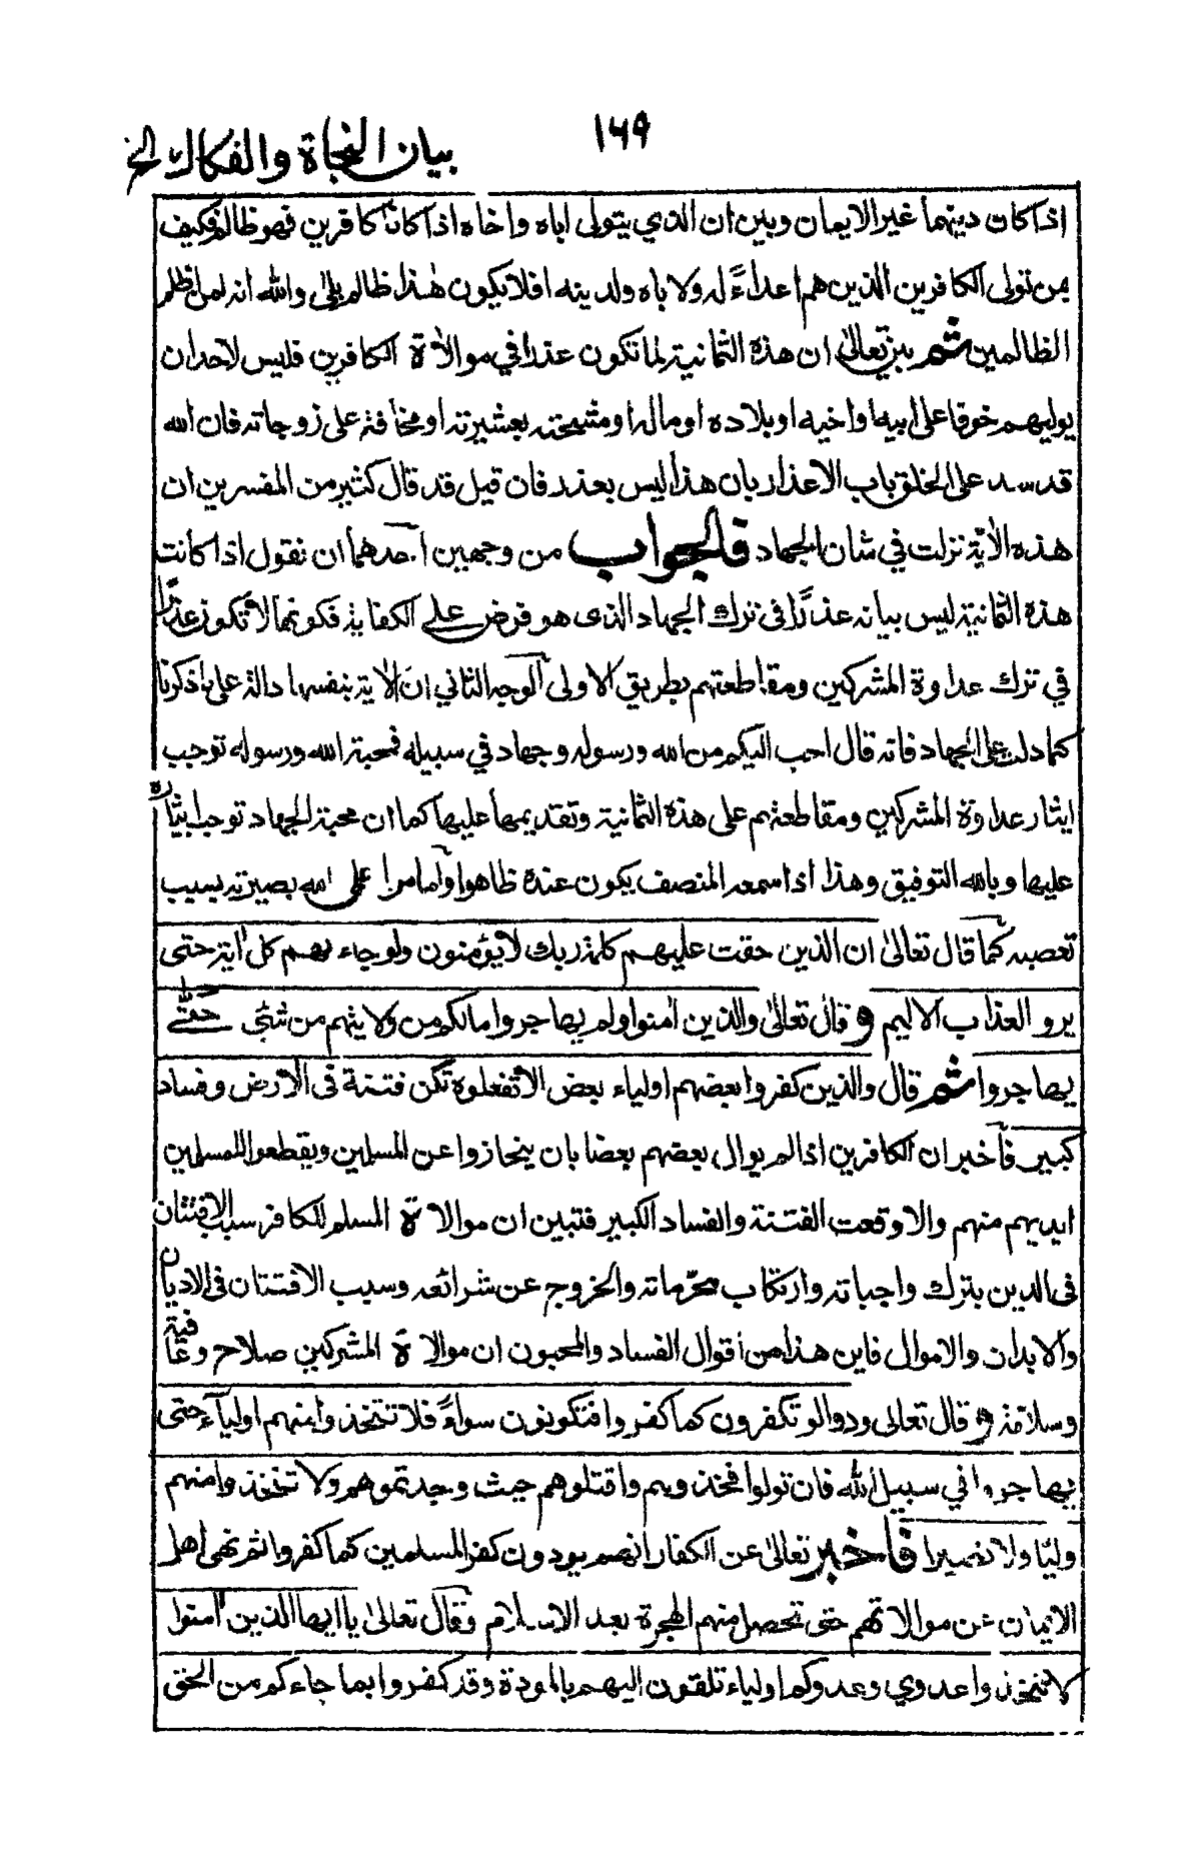 ١٦٩
بيان النجاة والفكاك الخ
اذا كان دينهما غير الايمان وبين ان الذي يتولى اباه واخاه اذا كانا كافرين فهو ظالم فكيف
بمن تولى الكافرين الذين هم اعداءً له ولاباه ولدينه افلا يكون هٰذا ظالم بلىٰ والله انه لمن اظلم
الظالمين ثم بين تعالىٰ ان هذه الثمانية لما تكون عذرا في موالاة الكافرين فليس لاحد ان
يوليهم خوفا على ابيه واخيه او بلاده او ماله او مشحته بعشيرته او مخافة على زوجاته فان الله
قد سد على الخلق باب الاعذار بان هذا ليس بعذر فان قيل قد قال كثير من المفسرين ان
هذه الاٰية نزلت في شان الجهاد فالجواب من وجهين احدهما ان نقول اذا كانت
هذه الثمانية ليس بيانه عذرًا فى ترك الجهاد الذى هو فرض على الكفاية فكونها لا تكون عذرًا
في ترك عداوة المشركين ومقاطعتهم بطريق الاولى الوجه الثاني ان الاٰية بنفسها دالة على ما ذكرنا
كما دلت على الجهاد فانه قال احب اليكم من الله ورسوله وجهاد في سبيله فمحبة الله ورسوله توجب
ايثار عداوة المشركين ومقاطعتهم على هذه الثمانية وتقديمها عليها كما ان محبة الجهاد توجب ايثاره
عليها وبالله التوفيق وهذا اذا سمعه المنصف يكون عنده ظاهرا واما من اعمى الله بصيرته بسبب
تعصبه كما قال تعالىٰ ان الذين حقت عليهم كلمة ربك لا يؤمنون ولو جاءهم كل اٰية حتى
يرو العذاب الاليم و قال تعالىٰ والذين اٰمنوا ولم يهاجروا مالكم من ولايتهم من شئى حتّٰے
يهاجروا ثم قال والذين كفروا بعضهم اولياء بعض الا تفعلوه تكن فتنة فى الارض وفساد
كبير فاخبر ان الكافرين اذا لم يوال بعضهم بعضا بان ينحازوا عن المسلمين ويقطعوا للمسلمين
ايديهم منهم والا وقعت الفتنة والفساد الكبير فتبين ان موالاة المسلم للكافر سبب الافتتان
فى الدين بترك واجباته وارتكاب محرّماته والخروج عن شرائعه وسبب الافتتان فى الاديان
والابدان والاموال فاين هذا من اقوال الفساد والمحبون ان موالاة المشركين صلاح وعافية
وسلامة و قال تعالى ودوا لو تكفرون كما كفروا فتكونون سواءً فلا تتخذوا منهم اولياءَ حتى
يهاجروا في سبيل الله فان تولوا فخذوهم واقتلوهم حيث وجدتموهم ولا تتخذوا منهم
وليّا ولا نصيرا فاخبر تعالىٰ عن الكفار انهم يودون كفر المسلمين كما كفروا ثم نهى اهل
الايمان عن موالاتهم حتى تحصل منهم الهجرة بعد الاسلام وقال تعالىٰ يا ايها الذين اٰمنوا
لا تتخذوا عدوي وعدوكم اولياء تلقون اليهم بالمودة وقد كفروا بما جاءكم من الحق